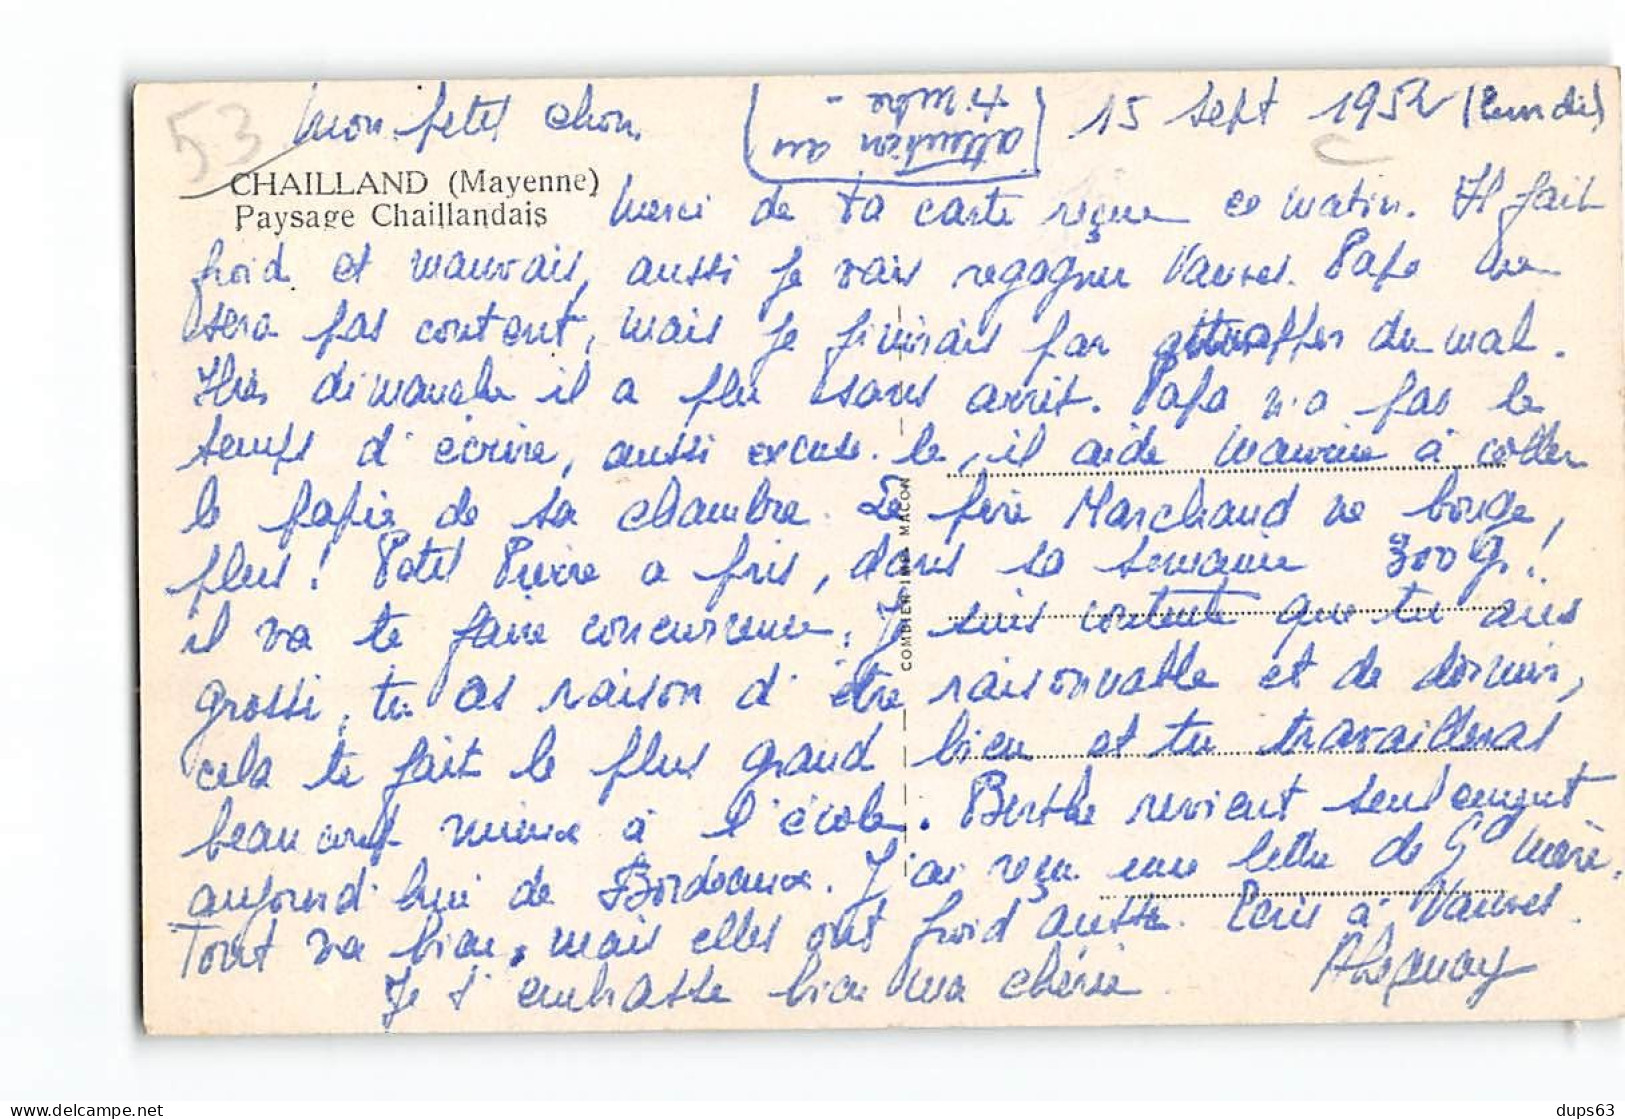 53
Mon petit chou.
15 Sept 1952 (Lundi)
[attention au
timbre -
CHAILLAND (Mayenne)
Paysage Chaillandais
Merci de ta carte reçue ce matin. Il fait
froid et mauvais, aussi je vais regagner Vanves. Papa ne
sera pas content, mais je finirais par attraper du mal.
Hier dimanche il a plu sans arrêt. Papa n'a pas le
temps d'écrire, aussi excuse-le, il aide Maurice à coller
le papier de sa chambre. Le père Marchand ne bouge
plus! Petit Pierre a pris, dans sa semaine 300 g!
il va te faire concurrence. Je suis contente que tu aies
grossi, tu as raison d'être raisonnable et de dormir,
cela te fait le plus grand bien et tu travailleras
beaucoup mieux à l'école. Berthe revient seulement
aujourd'hui de Bordeaux. J'ai reçu une lettre de Gd mère.
Tout va bien, mais elles ont froid aussi. Ecris à Vanves.
Je t'embrasse bien ma chérie
COMBIER IMP. MACON
dups63